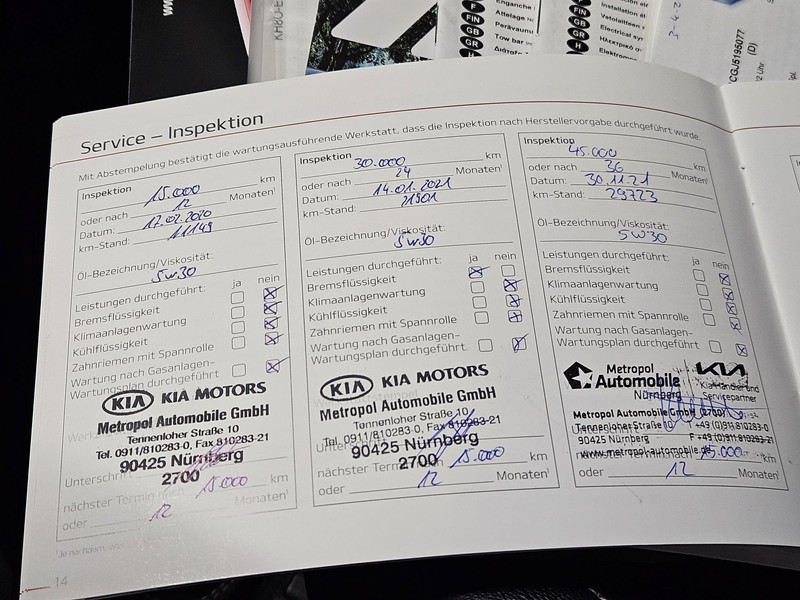 www
KH8O-E
F
FIN
GB
GR
Enganche
Attelage
Peräva
Tow bar
FIN
GB
GR
H
Installation
Vetolaitteen
Electrical sy
3-4-2
CGJ5195077
(D)
2 Uhr
Service – Inspektion
Mit Abstempelung bestätigt die wartungsausführende Werkstatt, dass die Inspektion nach Herstellervorgabe durchgeführt wurde.
Inspektion
15.000 km
oder nach 12 Monaten¹
Datum: 17.02.2020
km-Stand: 11149
Öl-Bezeichnung/Viskosität:
5w30
Leistungen durchgeführt: ja nein
Bremsflüssigkeit
Klimaanlagenwartung
Kühlflüssigkeit
Zahnriemen mit Spannrolle
Wartung nach Gasanlagen-
Wartungsplan durchgeführt
KIA KIA MOTORS
Metropol Automobile GmbH
Tennenloher Straße 10
Tel. 0911/810283-0, Fax 810283-21
90425 Nürnberg
Unterschrift 2700
nächster Termin nach 15.000
oder 12 Monaten¹
Inspektion
30.000 km
oder nach 24 Monaten¹
Datum: 14.01.2021
km-Stand: 21901
Öl-Bezeichnung/Viskosität:
5w30
Leistungen durchgeführt: ja nein
Bremsflüssigkeit
Klimaanlagenwartung
Kühlflüssigkeit
Zahnriemen mit Spannrolle
Wartung nach Gasanlagen-
Wartungsplan durchgeführt
KIA KIA MOTORS
Metropol Automobile GmbH
Tennenloher Straße 10
Tel. 0911/810283-0, Fax 810283-21
Unterschrift
90425 Nürnberg
2700
nächster Termin nach 15.000 km
oder 12 Monaten¹
Inspektion
45.000 km
oder nach 36 Monaten¹
Datum: 30.11.21
km-Stand: 29723
Öl-Bezeichnung/Viskosität:
5W30
Leistungen durchgeführt: ja nein
Bremsflüssigkeit
Klimaanlagenwartung
Kühlflüssigkeit
Zahnriemen mit Spannrolle
Wartung nach Gasanlagen-
Wartungsplan durchgeführt
Metropol
Automobile
Nürnberg
KIA
Kia Händler und
Servicepartner
Metropol Automobile GmbH (2700)
Tennenloher Straße 10 T +49 (0)911.810283-0
90425 Nürnberg F +49 (0)911.810283-21
www.metropol-automobile.de
nächster Termin nach 15.000 km
oder 12 Monaten¹
14